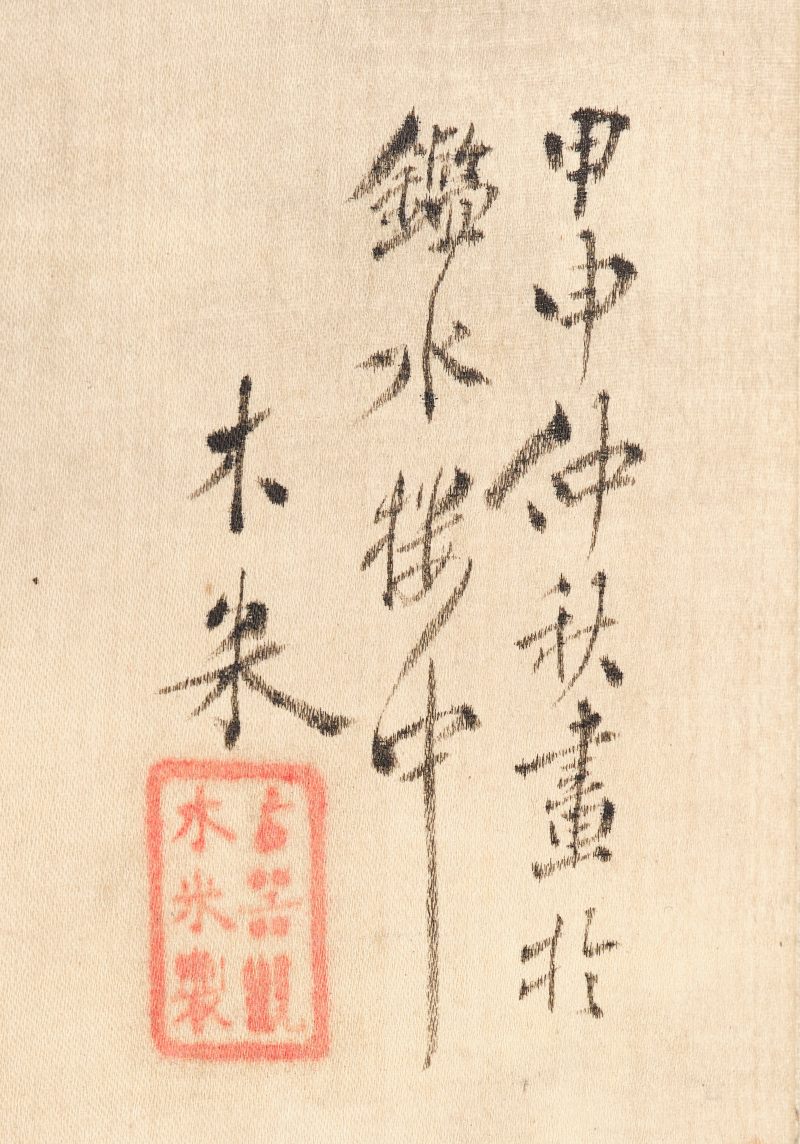 甲申仲秋畫於
鑑水楼中
木米
古器觀
木米製